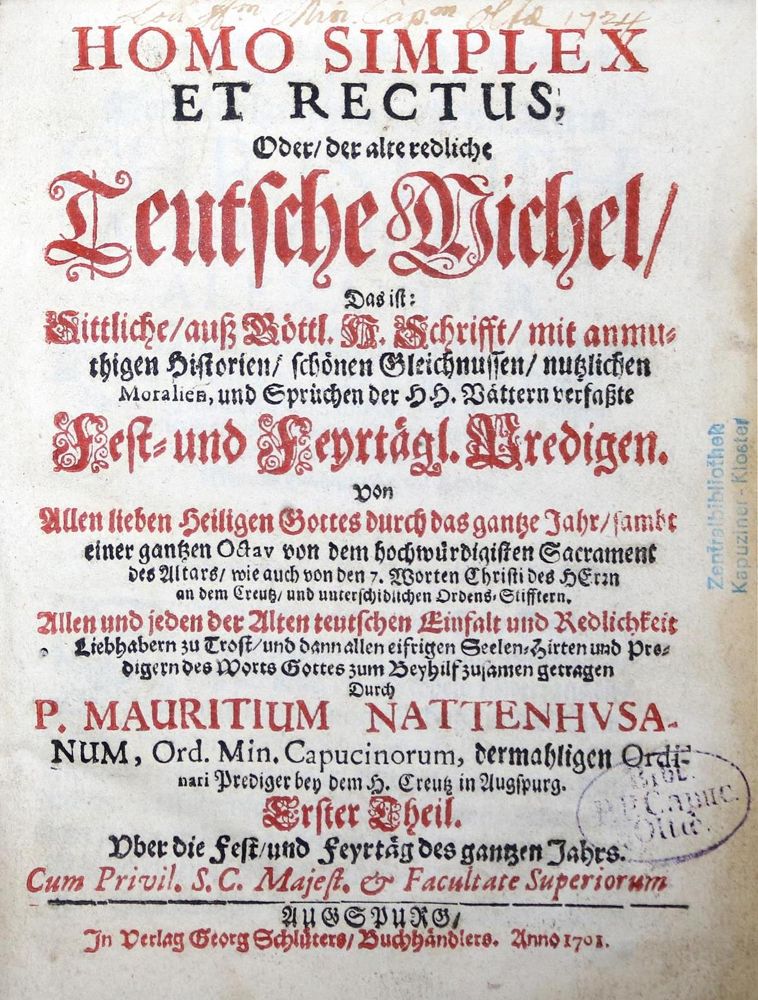 Min. Cap. Oltae 1724
HOMO SIMPLEX
ET RECTUS,
Oder/ der alte redliche
Teutsche Michel/
Das ist:
Sittliche/ auß Göttl. H. Schrifft/ mit anmu-
thigen Historien/ schönen Gleichnussen/ nutzlichen
Moralien, und Sprüchen der HH. Vättern verfaßte
Fest- und Feyrtägl. Predigen.
Von
Allen lieben Heiligen Gottes durch das gantze Jahr/ sambt
einer gantzen Octav von dem hochwürdigisten Sacrament
des Altars/ wie auch von den 7. Worten Christi des HErrn
an dem Creutz/ und unterschidlichen Ordens-Stifftern.
Allen und jeden der Alten teutschen Einfalt und Redlichkeit
Liebhabern zu Trost/ und dann allen eifrigen Seelen-Hirten und Pre-
digern des Worts Gottes zum Beyhilf zusamen getragen
Durch
P. MAURITIUM NATTENHVSA-
NUM, Ord. Min. Capucinorum, dermahligen Ordi-
nari Prediger bey dem H. Creutz in Augspurg.
Erster Theil.
Vber die Fest/ und Feyrtäg des gantzen Jahrs.
Cum Privil. S. C. Majest. & Facultate Superiorum
AUGSPURG/
In Verlag Georg Schlüters/ Buchhändlers. Anno 1701.
Zentralbibliothek
Kapuziner-Kloster
Bibl.
P.P. Capuc.
Oltae.